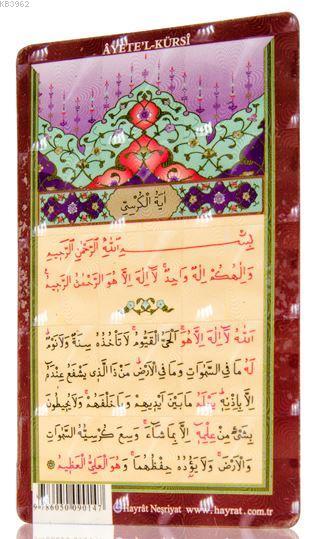 KB3962
ÂYETE'L-KÜRSÎ
اٰيَةُ الْكُرْسِيِّ
بِسْمِ اللّٰهِ الرَّحْمٰنِ الرَّحِيمِ
وَاِلٰهُكُمْ اِلٰهٌ وَاحِدٌ لَٓا اِلٰهَ اِلَّا هُوَ الرَّحْمٰنُ الرَّحِيمُ
اَللّٰهُ لَٓا اِلٰهَ اِلَّا هُوَ اَلْحَيُّ الْقَيُّومُ لَا تَأْخُذُهُ سِنَةٌ وَلَا نَوْمٌ
لَهُ مَا فِي السَّمٰوَاتِ وَمَا فِي الْاَرْضِ مَنْ ذَا الَّذِي يَشْفَعُ عِنْدَهُٓ
اِلَّا بِاِذْنِهِ يَعْلَمُ مَا بَيْنَ اَيْدِيهِمْ وَمَا خَلْفَهُمْ وَلَا يُحِيطُونَ
بِشَيْءٍ مِنْ عِلْمِهِٓ اِلَّا بِمَا شَٓاءَ وَسِعَ كُرْسِيُّهُ السَّمٰوَاتِ
وَالْاَرْضَ وَلَا يَؤُدُهُ حِفْظُهُمَا وَهُوَ الْعَلِيُّ الْعَظِيمُ
9786050090147
©Hayrât Neşriyat www.hayrat.com.tr